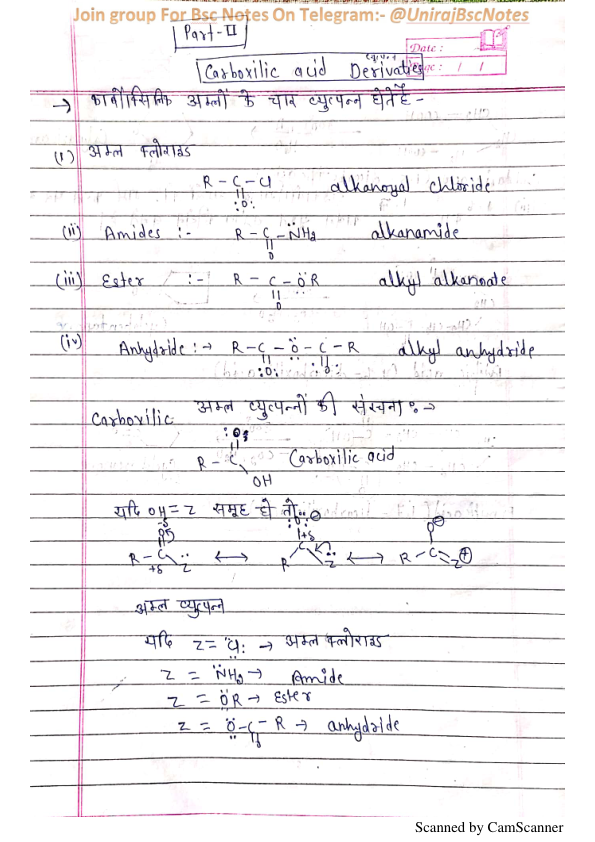 Join group For Bsc Notes On Telegram:- @UnirajBscNotes
Part-II
व्युत्पन्न
Date :
Carboxilic acid Derivaties
Page :
→ कार्बोक्सिलिक अम्लों के चार व्युत्पन्न होते हैं -
(i) अम्ल क्लोराइड
R - C - Cl alkanoyal chloride
||
:O:
(ii) Amides :- R - C - N̈H₂ alkanamide
||
O
(iii) Ester :- R - C - ÖR alkyl alkanoate
||
O
(iv) Anhydride :→ R - C - Ö - C - R alkyl anhydride
|| ||
:O: :O:
Carboxilic अम्ल व्युत्पन्नों की संरचना :→
:O:
||
R - C Carboxilic acid
OH
यदि OH = Z समूह हो तो
R - C Z ⟷ R C Z ⟷ R - C = Z⊕
+δ
अम्ल व्युत्पन्न
यदि Z = Cl: → अम्ल क्लोराइड
Z = N̈H₂ → Amide
Z = ÖR → Ester
Z = Ö - C - R → anhydride
||
O
Scanned by CamScanner